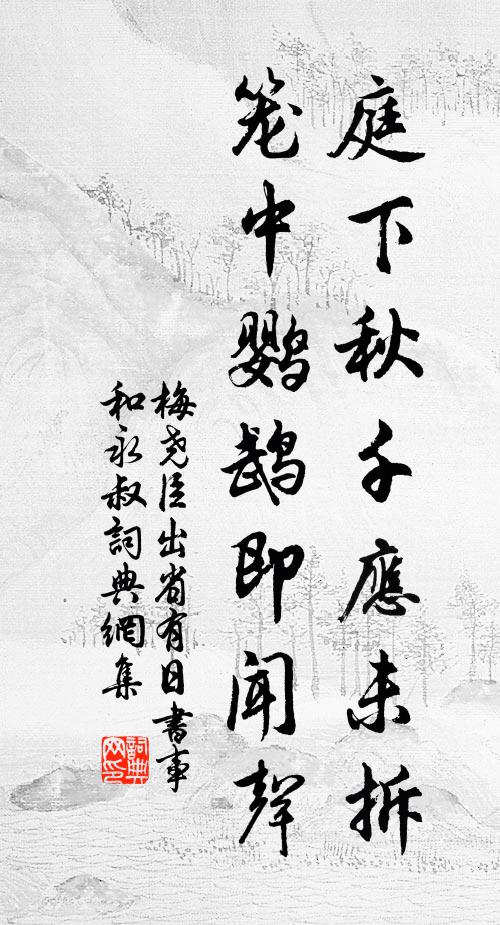 庭下秋千應未拆
笼中鹦鹉即聞聲
梅尧臣出省有日書事
和永叔詞典網集
詞典网印